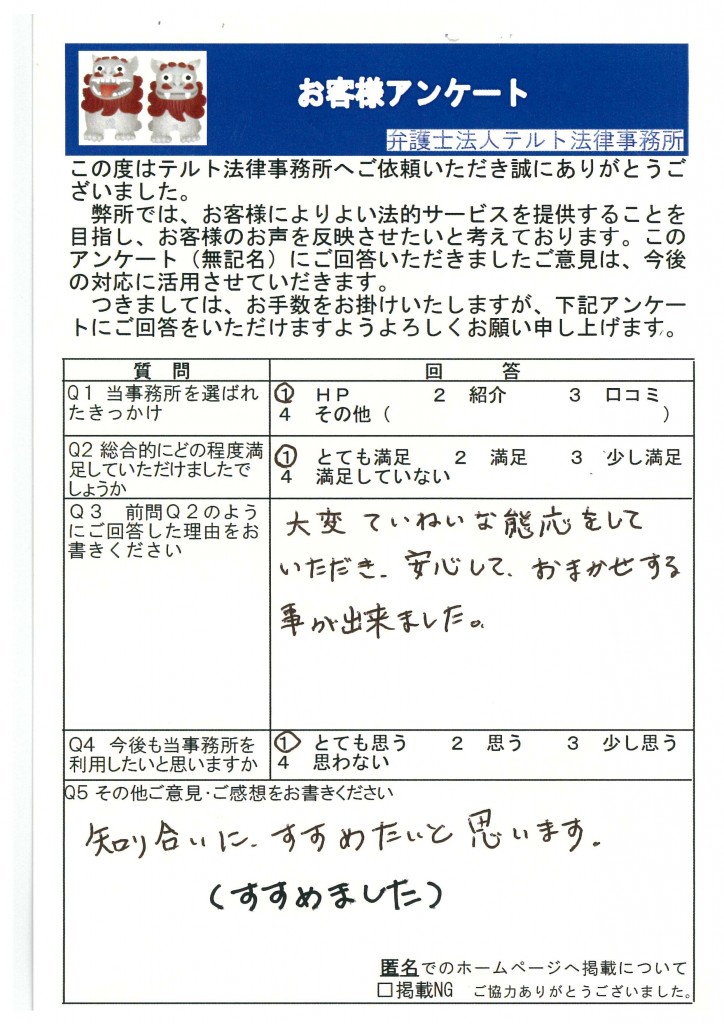 お客様アンケート
弁護士法人テルト法律事務所
この度はテルト法律事務所へご依頼いただき誠にありがとうご
ざいました。
弊所では、お客様によりよい法的サービスを提供することを
目指し、お客様のお声を反映させたいと考えております。この
アンケート（無記名）にご回答いただきましたご意見は、今後
の対応に活用させていだきます。
つきましては、お手数をお掛けいたしますが、下記アンケー
トにご回答をいただけますようよろしくお願い申し上げます。
質　問　回　答
Ｑ１ 当事務所を選ばれ　① ＨＰ　２ 紹介　３ 口コミ
たきっかけ　４ その他（　）
Q2 総合的にどの程度満　① とても満足　２ 満足　３ 少し満足
足していただけましたで　４ 満足していない
しょうか
Ｑ３　前問Ｑ２のよう
にご回答した理由をお
書きください
大変ていねいな態応をして
いただき、安心して、おまかせする
事が出来ました。
Q4 今後も当事務所を　① とても思う　２ 思う　３ 少し思う
利用したいと思いますか　４ 思わない
Q5 その他ご意見・ご感想をお書きください
知り合いに、すすめたいと思います。
（すすめました）
匿名でのホームページへ掲載について
□掲載NG　ご協力ありがとうございました。